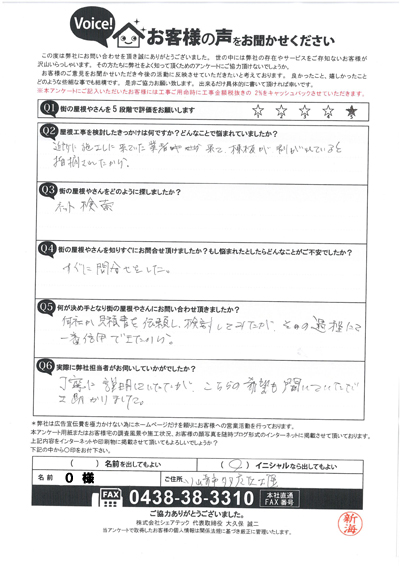 Voice!
お客様の声をお聞かせください
この度は弊社にお問い合わせを頂き誠にありがとうございました。世の中には弊社の存在やサービスをご存知ないお客様が
沢山いらっしゃいます。その方たちに弊社をよく知って頂くためのアンケートにご協力頂けないでしょうか。
お客様のご意見をお聞かせいただき今後の活動に反映させていただきたいと考えております。良かったこと、嬉しかったこと
どのような些細な事でも結構です。是非ご協力お願い致します。出来るだけ具体的に書いて頂ければ幸いです。
※本アンケートにご記入いただいたお客様には工事ご用命時に工事金額税抜きの2%をキャッシュバックさせていただきます。
Q1 街の屋根やさんを5段階で評価をお願いします
Q2 屋根工事を検討したきっかけは何ですか?どんなことで悩まれていましたか?
近所に施工しに来ていた業者が来て、棟板が剥がれていると
指摘されたから。
Q3 街の屋根やさんをどのように探しましたか?
ネット検索
Q4 街の屋根やさんを知りすぐにお問合せ頂けましたか?もし悩まれたとしたらどんなことがご不安でしたか?
すぐに問合せをした。
Q5 何が決め手となり街の屋根やさんにお問い合わせ頂きましたか?
何社か見積書を依頼し、検討してみたが、
一番信用できたから。
Q6 実際に弊社担当者がお伺いしていかがでしたか?
丁寧に説明していただき、こちらの希望も聞いていただいて
助かりました。
※弊社は広告宣伝費を極力かけない為にホームページだけを頼りにお客様への営業活動を行っております。
本アンケート用紙またはお客様宅の調査風景や施工状況、お客様の顔写真を随時ブログ形式のインターネットに掲載させて頂いております。
上記内容をインターネットや印刷物に掲載させて頂いてもよろしいでしょうか?
下記の中から〇印をお付け下さい。
( )名前を出してもよい (〇)イニシャルなら出してもよい
名前 O 様 ご住所
FAX 0438-38-3310 本社直通 FAX番号
ご協力ありがとうございました。
株式会社シェアテック 代表取締役 大久保 誠二
当アンケートで取得したお客様の個人情報は関係法規に基づき厳正に管理いたします。
新海